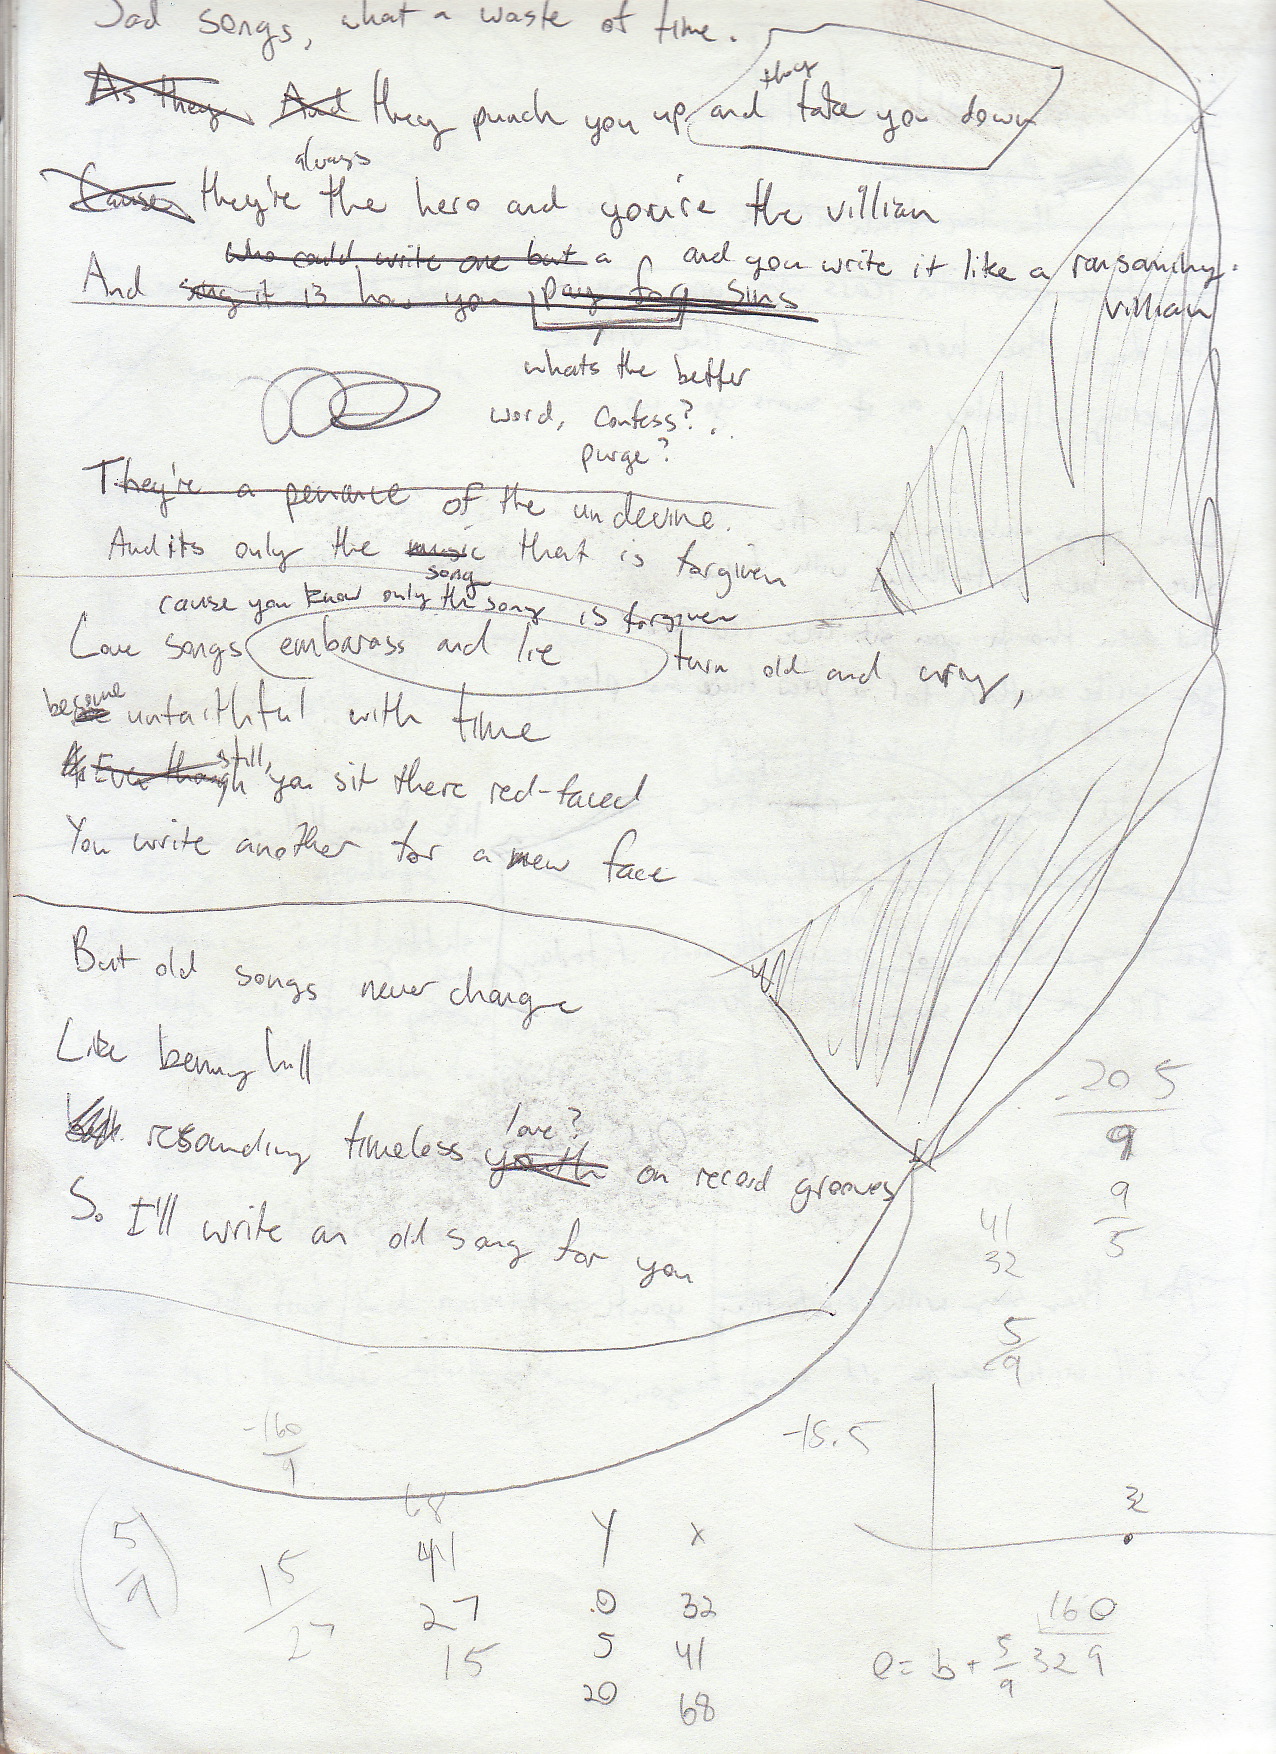 Sad songs, what a waste of time.
they
As they And they punch you up and take you down
always
Cause they're the hero and you're the villian
who could write one but a and you write it like a ransoming
villian
And song it is how you pay for sins
whats the better
word, Confess?
purge?
They're a penance of the undevine.
And its only the music that is forgiven
song
cause you know only the song is forgiven
Love songs embarass and lie turn old and wry,
become
unfaithful with time
still,
Even though you sit there red-faced
You write another for a new face
But old songs never change
Like benny hill
love?
resounding timeless youth on record grooves
So I'll write an old song for you
20 5
9
9
5
41
32
5
9
-160
9
-15.5
32
5
9
15
27
68
41
27
15
y x
0 32
5 41
20 68
160
0= b + 5/9 32 9